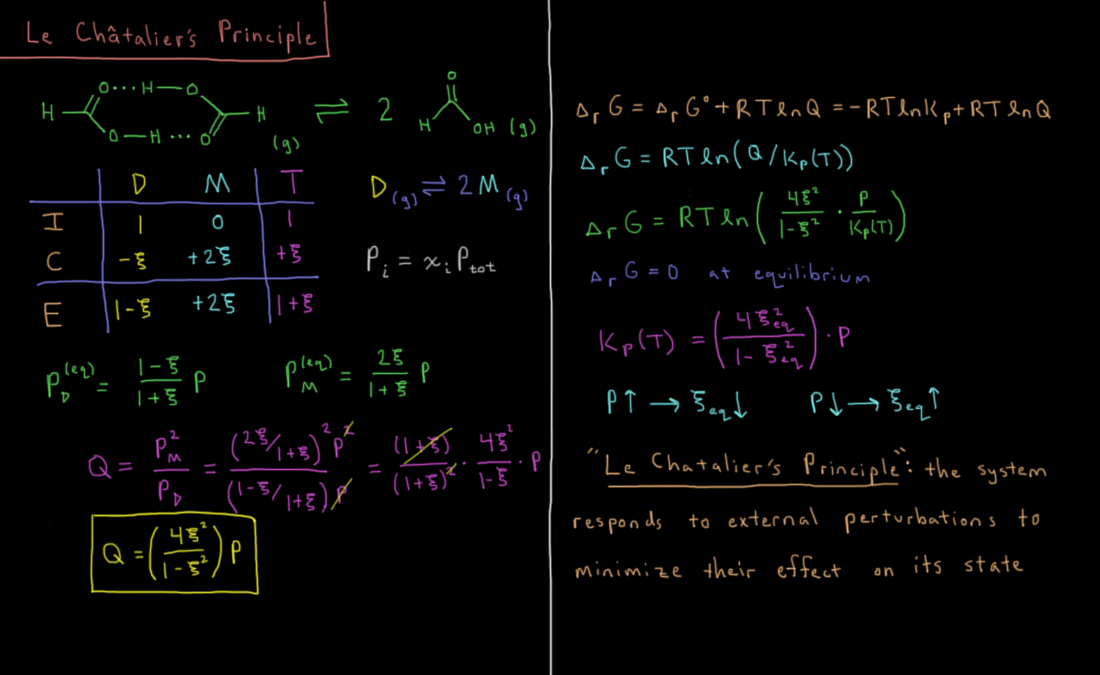 Le Châtalier's Principle
O···H—O
H H
O—H···O
(g)
⇌ 2
O
H OH (g)
D M T
I 1 0 1
C -ξ +2ξ +ξ
E 1-ξ +2ξ 1+ξ
D(g) ⇌ 2M(g)
Pᵢ = xᵢ Pₜₒₜ
P_D^(eq) = (1-ξ)/(1+ξ) P
P_M^(eq) = 2ξ/(1+ξ) P
Q = P_M²/P_D = (2ξ/1+ξ)² P² / (1-ξ/1+ξ) P = (1+ξ)/(1+ξ)² · 4ξ²/1-ξ · P
Q = (4ξ²/1-ξ²) P
ΔᵣG = ΔᵣG° + RT ln Q = -RT ln Kp + RT ln Q
ΔᵣG = RT ln(Q/Kp(T))
ΔᵣG = RT ln(4ξ²/1-ξ² · P/Kp(T))
ΔᵣG = 0 at equilibrium
Kp(T) = (4ξ²eq/1-ξ²eq) · P
P↑ → ξeq↓ P↓ → ξeq↑
"Le Chatalier's Principle": the system
responds to external perturbations to
minimize their effect on its state